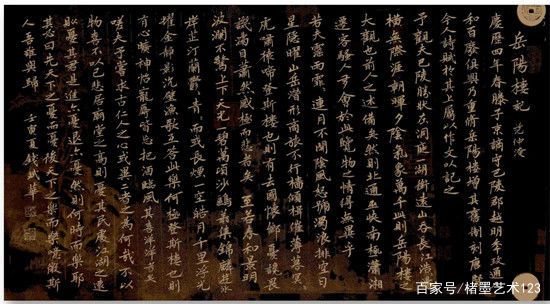 岳陽樓記 范仲淹
慶歷四年春滕子京謫守巴陵郡越明年政通
和百廢俱興乃重修岳陽樓增其舊制刻唐賢
今人詩賦於其上屬以作文以記之
予觀夫巴陵勝狀在洞庭湖銜遠山吞長江浩浩湯湯
橫無際涯朝暉夕陰氣象萬千此則岳陽樓之
大觀也前人之述備矣然則北通巫峽南極瀟湘
遷客騷人多會於此覽物之情得無異乎
若夫霪雨霏霏連月不開陰風怒號濁浪排空日
星隱曜山岳潛形商旅不行檣傾楫摧薄暮冥冥
虎嘯猿啼登斯樓也則有去國懷鄉憂讒畏
譏滿目蕭然感極而悲者矣 至若春和景明
波瀾不驚上下天光一碧萬頃沙鷗翔集錦鱗游泳
岸芷汀蘭郁郁青青而或長煙一空皓月千里浮光
耀金靜影沉璧漁歌互答此樂何極登斯樓也則
有心曠神怡寵辱皆忘把酒臨風其喜洋洋者矣
嗟夫予嘗求古仁人之心或異二者之為何哉不以
物喜不以己悲居廟堂之高則憂其民處江湖之遠
則憂其君是進亦憂退亦憂然則何時而樂耶
其必曰先天下之憂而憂後天下之樂而樂歟噫微斯
人吾誰與歸 壬寅夏錢斌華
百家号/楮墨艺术123